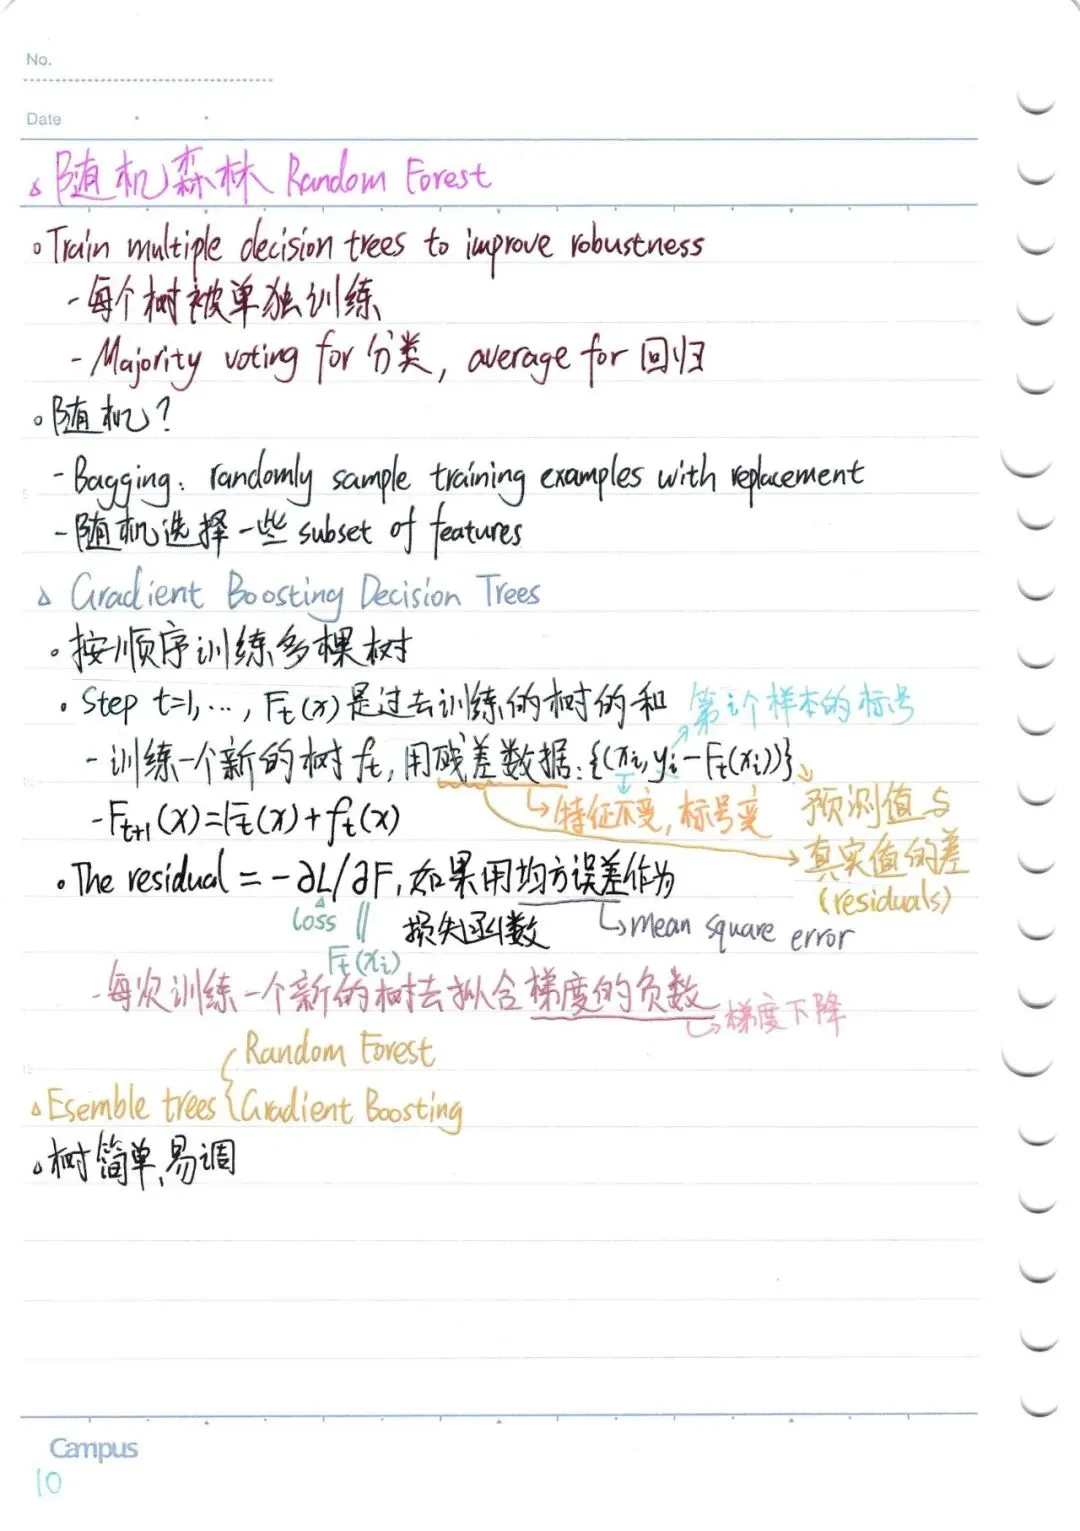 No.
Date
△ 随机森林 Random Forest
○ Train multiple decision trees to improve robustness
- 每个树被单独训练
- Majority voting for 分类, average for 回归
○ 随机?
- Bagging: randomly sample training examples with replacement
- 随机选择一些 subset of features
△ Gradient Boosting Decision Trees
• 按顺序训练多棵树
• Step t=1,…, Fₜ(x) 是过去训练的树的和
第i个样本的标号
- 训练一个新的树 fₜ, 用残差数据: {(xᵢ, yᵢ-Fₜ(xᵢ))}
↳ 特征不变, 标号变
预测值与
真实值的差
(residuals)
- Fₜ₊₁(x)=Fₜ(x)+fₜ(x)
• The residual = -∂L/∂F, 如果用均方误差作为
损失函数
loss ||
Fₜ(xᵢ)
↳ mean square error
- 每次训练一个新的树去拟合梯度的负数
↳ 梯度下降
△ Esemble trees { Random Forest
Gradient Boosting
○ 树简单, 易调
Campus
10